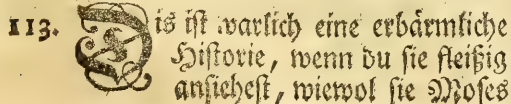 113. Dis ist warlich eine erbärmliche
Historie, wenn du sie fleißig
ansiehest, wiewol sie Moses